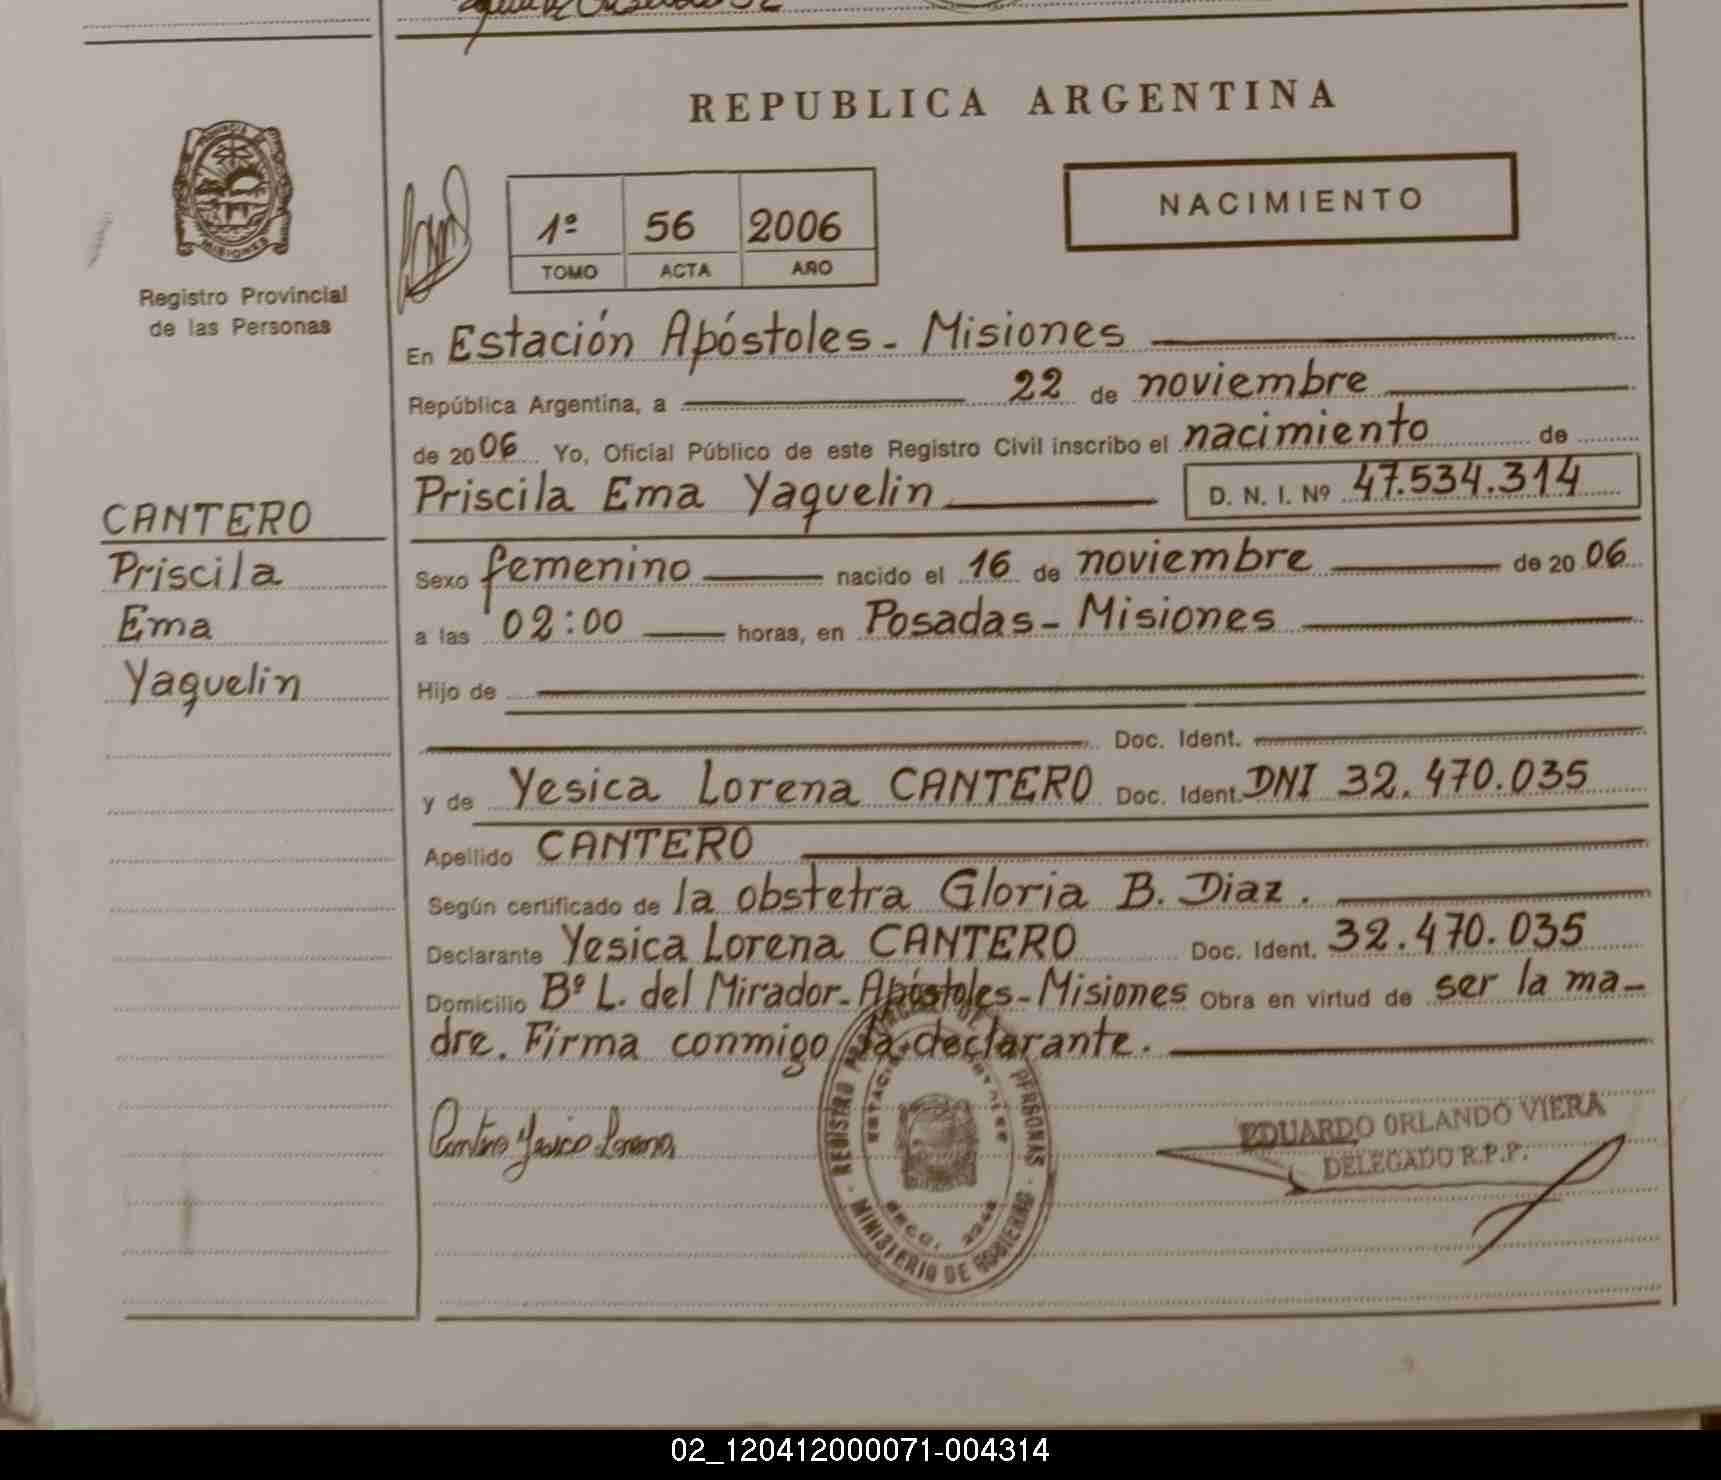 REPUBLICA ARGENTINA
PROVINCIA DE
MISIONES
Registro Provincial
de las Personas
1º 56 2006
TOMO ACTA AÑO
NACIMIENTO
En Estación Apóstoles - Misiones
República Argentina, a 22 de noviembre
de 2006 Yo, Oficial Público de este Registro Civil inscribo el nacimiento de
Priscila Ema Yaquelin D. N. I. Nº 47.534.314
CANTERO
Priscila
Ema
Yaquelin
Sexo femenino nacido el 16 de noviembre de 2006
a las 02:00 horas, en Posadas - Misiones
Hijo de
Doc. Ident.
y de Yesica Lorena CANTERO Doc. Ident. DNI 32.470.035
Apellido CANTERO
Según certificado de la obstetra Gloria B. Diaz.
Declarante Yesica Lorena CANTERO Doc. Ident. 32.470.035
Domicilio Bº L. del Mirador - Apóstoles - Misiones Obra en virtud de ser la ma-
dre. Firma conmigo la declarante.
Cantero Yesica Lorena
REGISTRO PROVINCIAL DE LAS PERSONAS
MINISTERIO DE GOBIERNO
EDUARDO ORLANDO VIERA
DELEGADO R.P.P.
02_120412000071-004314